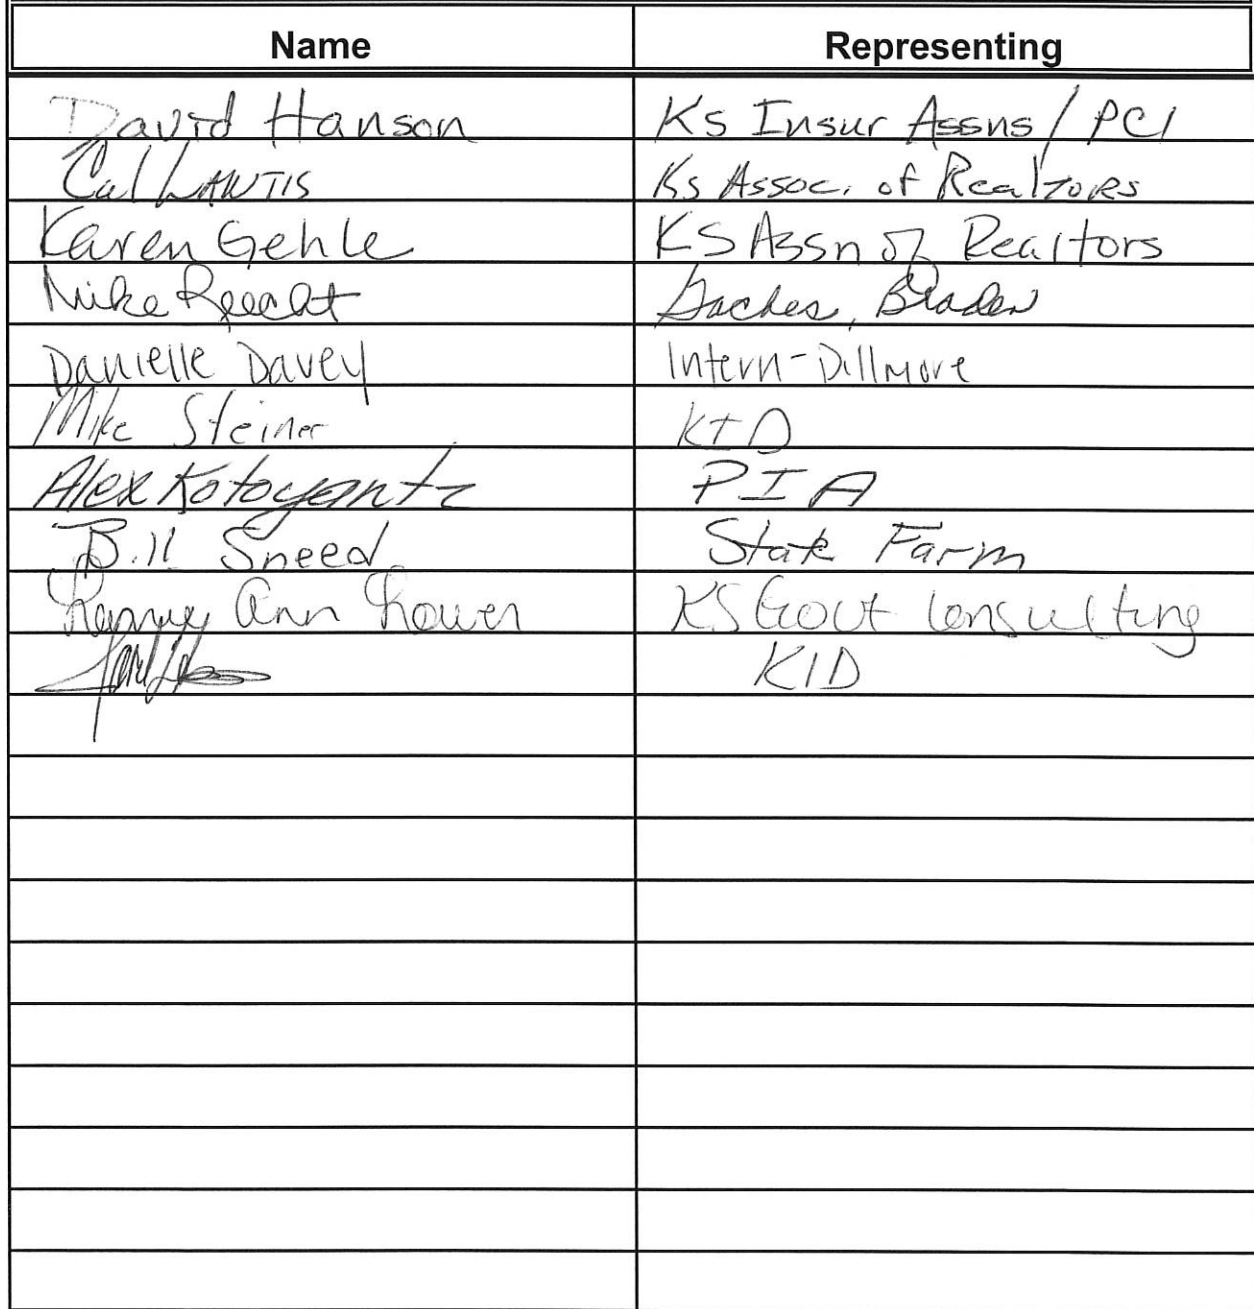 Name Representing
David Hanson Ks Insur Assns / PCI
Cal Lantis Ks Assoc. of Realtors
Karen Gehle KS Assn of Realtors
Mike Reecht Gaches, Braden
Danielle Davey Intern-Dillmore
Mike Steiner KID
Alex Kotoyantz PIA
Bill Sneed State Farm
Ann KS Govt Consulting
KID